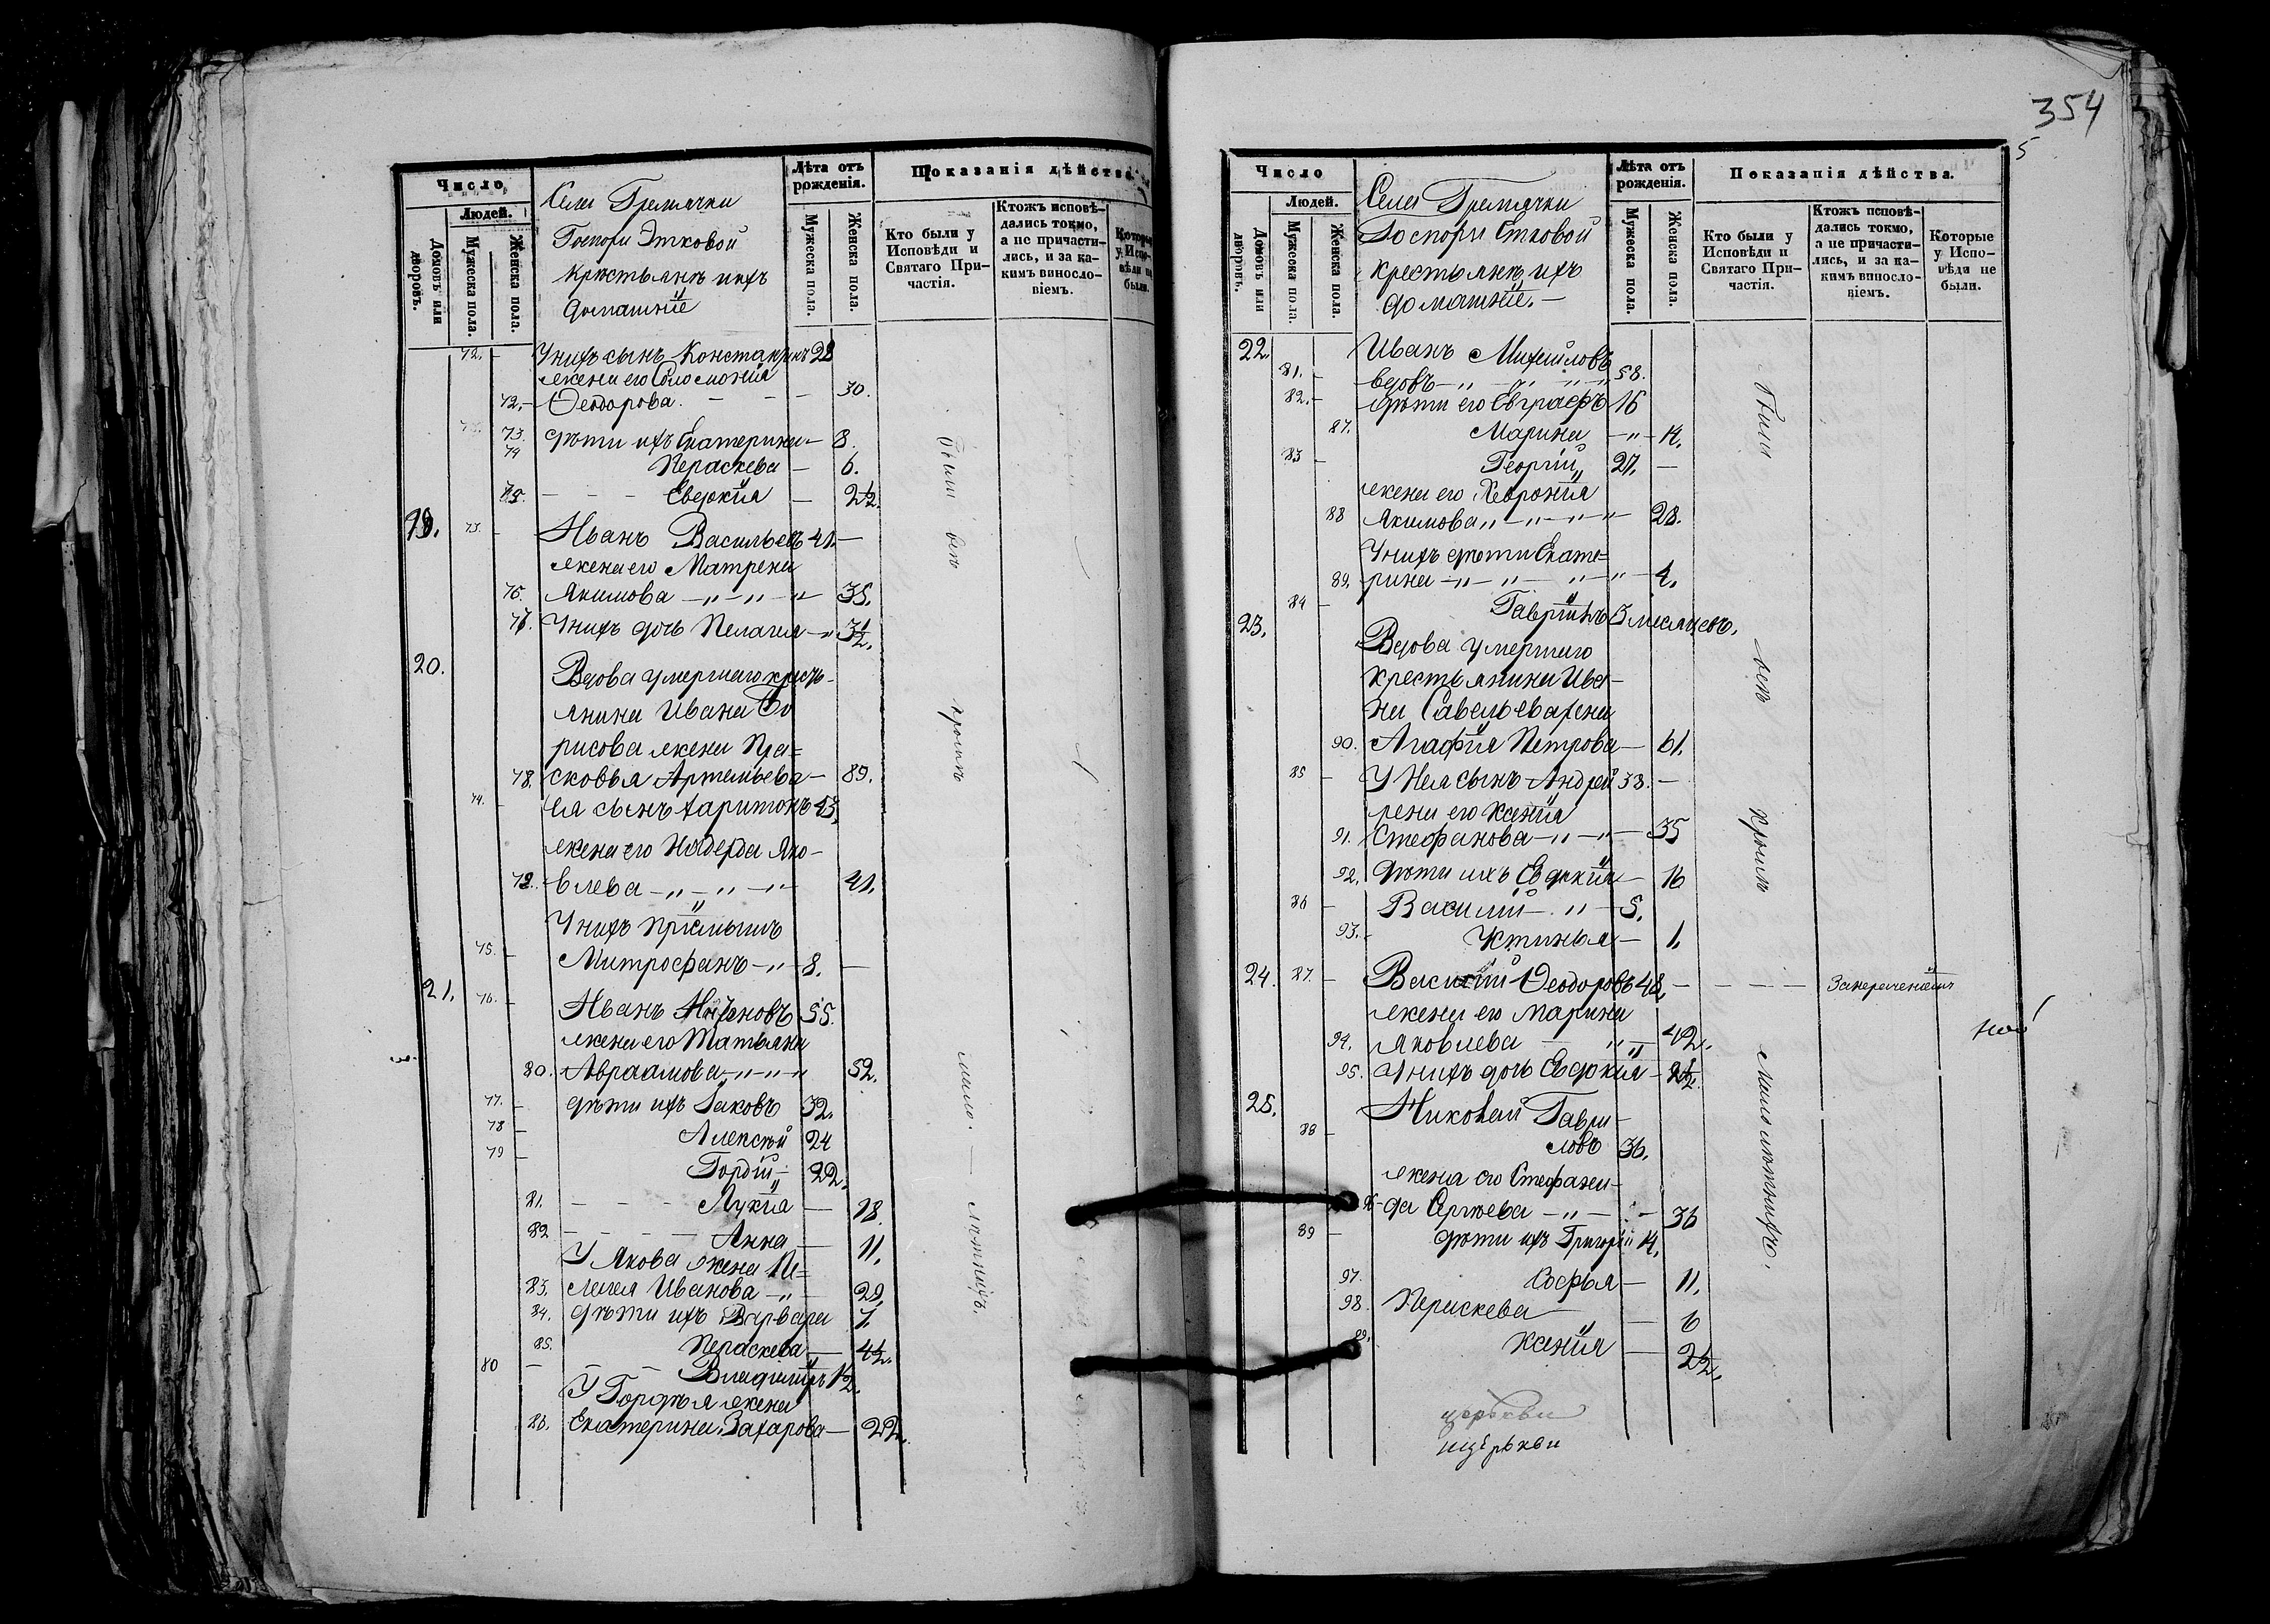 354
5
Число
Людей.
Домовъ или дворовъ.
Мужеска пола.
Женска пола.
Села Гремячки
Госпожи Этковой
крестьянъ ихъ
домашнiе
Лѣта отъ рожденiя.
Мужеска пола.
Женска пола.
Показанiя дѣйства
Кто были у Исповѣди и Святаго Причастiя.
Ктожъ исповѣдались токмо, а не причастились, и за какимъ винословiемъ.
Которые у Исповѣди не были.
72. У нихъ сынъ Константинъ 28
жена его Соломонiя
72. Ѳеодорова 30.
73. дѣти ихъ Екатерина 8.
74 Параскева 6.
75. Евдокiя 2 1/2
19. 73. Иванъ Васильевъ 41.
жена его Матрена
76. Якимова 35.
77. У нихъ дочь Пелагея 3 1/2.
20. Вдова умершаго кресть-
янина Ивана Бо
рисова жена Пра=
78. сковья Артемьева 89.
74. Ея сынъ Харитонъ 43,
жена его Надежда Яко-
79. влева 41.
У нихъ прiемышъ
75. Митрофанъ 8.
21. 76. Иванъ Ивановъ 55.
жена его Татьяна
80. Авраамова 52.
77. дѣти ихъ Iаковъ 32.
78 Алексѣй 24
79 Гордiй 22.
81. Лукiя 18.
82 Анна 11.
У Якова жена Пе=
83. лагея Иванова 29.
84. дѣти ихъ Варвара 7.
85. Параскева 4 1/2.
80 Владимiръ 1/2.
У Гордѣя жена
86. Екатерина Захарова 22.
Были всѣ кромѣ мало-лѣтнихъ.
Число
Людей.
Домовъ или дворовъ.
Мужеска пола.
Женска пола.
Села Гремячки
Госпожи Етковой
крестьянъ ихъ
домашнiе.
Лѣта отъ рожденiя.
Мужеска пола.
Женска пола.
Показанiя дѣйства.
Кто были у Исповѣди и Святаго Причастiя.
Ктожъ исповѣдались токмо, а не причастились, и за какимъ винословiемъ.
Которые у Исповѣди не были.
22. Иванъ Михайловъ
81. вдовъ 58.
82. дѣти его Евграфъ 16
87. Марина 14.
83 Георгiй 27.
жена его Хеврония
88 Якимова 28.
У нихъ дѣти Екате=
89. рина 4.
84 Гаврiилъ 3 месяцевъ.
23. Вдова умершаго
крестьянина Ива-
на Савельева жена
90. Агафiя Петрова 61.
85 У Нея сынъ Андрей 33.
жена его Ксенiя
91. Стефанова 35
92. дѣти ихъ Евдокiя 16
86 Василiй 5.
93. Устинья 1.
24. 87. Василiй Ѳеодоровъ 48.
жена его Марина
94. Яковлева 42.
95. У нихъ дочь Евдокiя 2 1/2.
25. Николай Гаври-
88 ловъ 36.
жена его Стефани-
да Сергѣева 36
89 дѣти ихъ Григорiй 14.
97. Софья 11.
98. Параскева 6
99. Ксенiя 2 1/2.
Были всѣ кромѣ малолѣтнихъ.
церькви